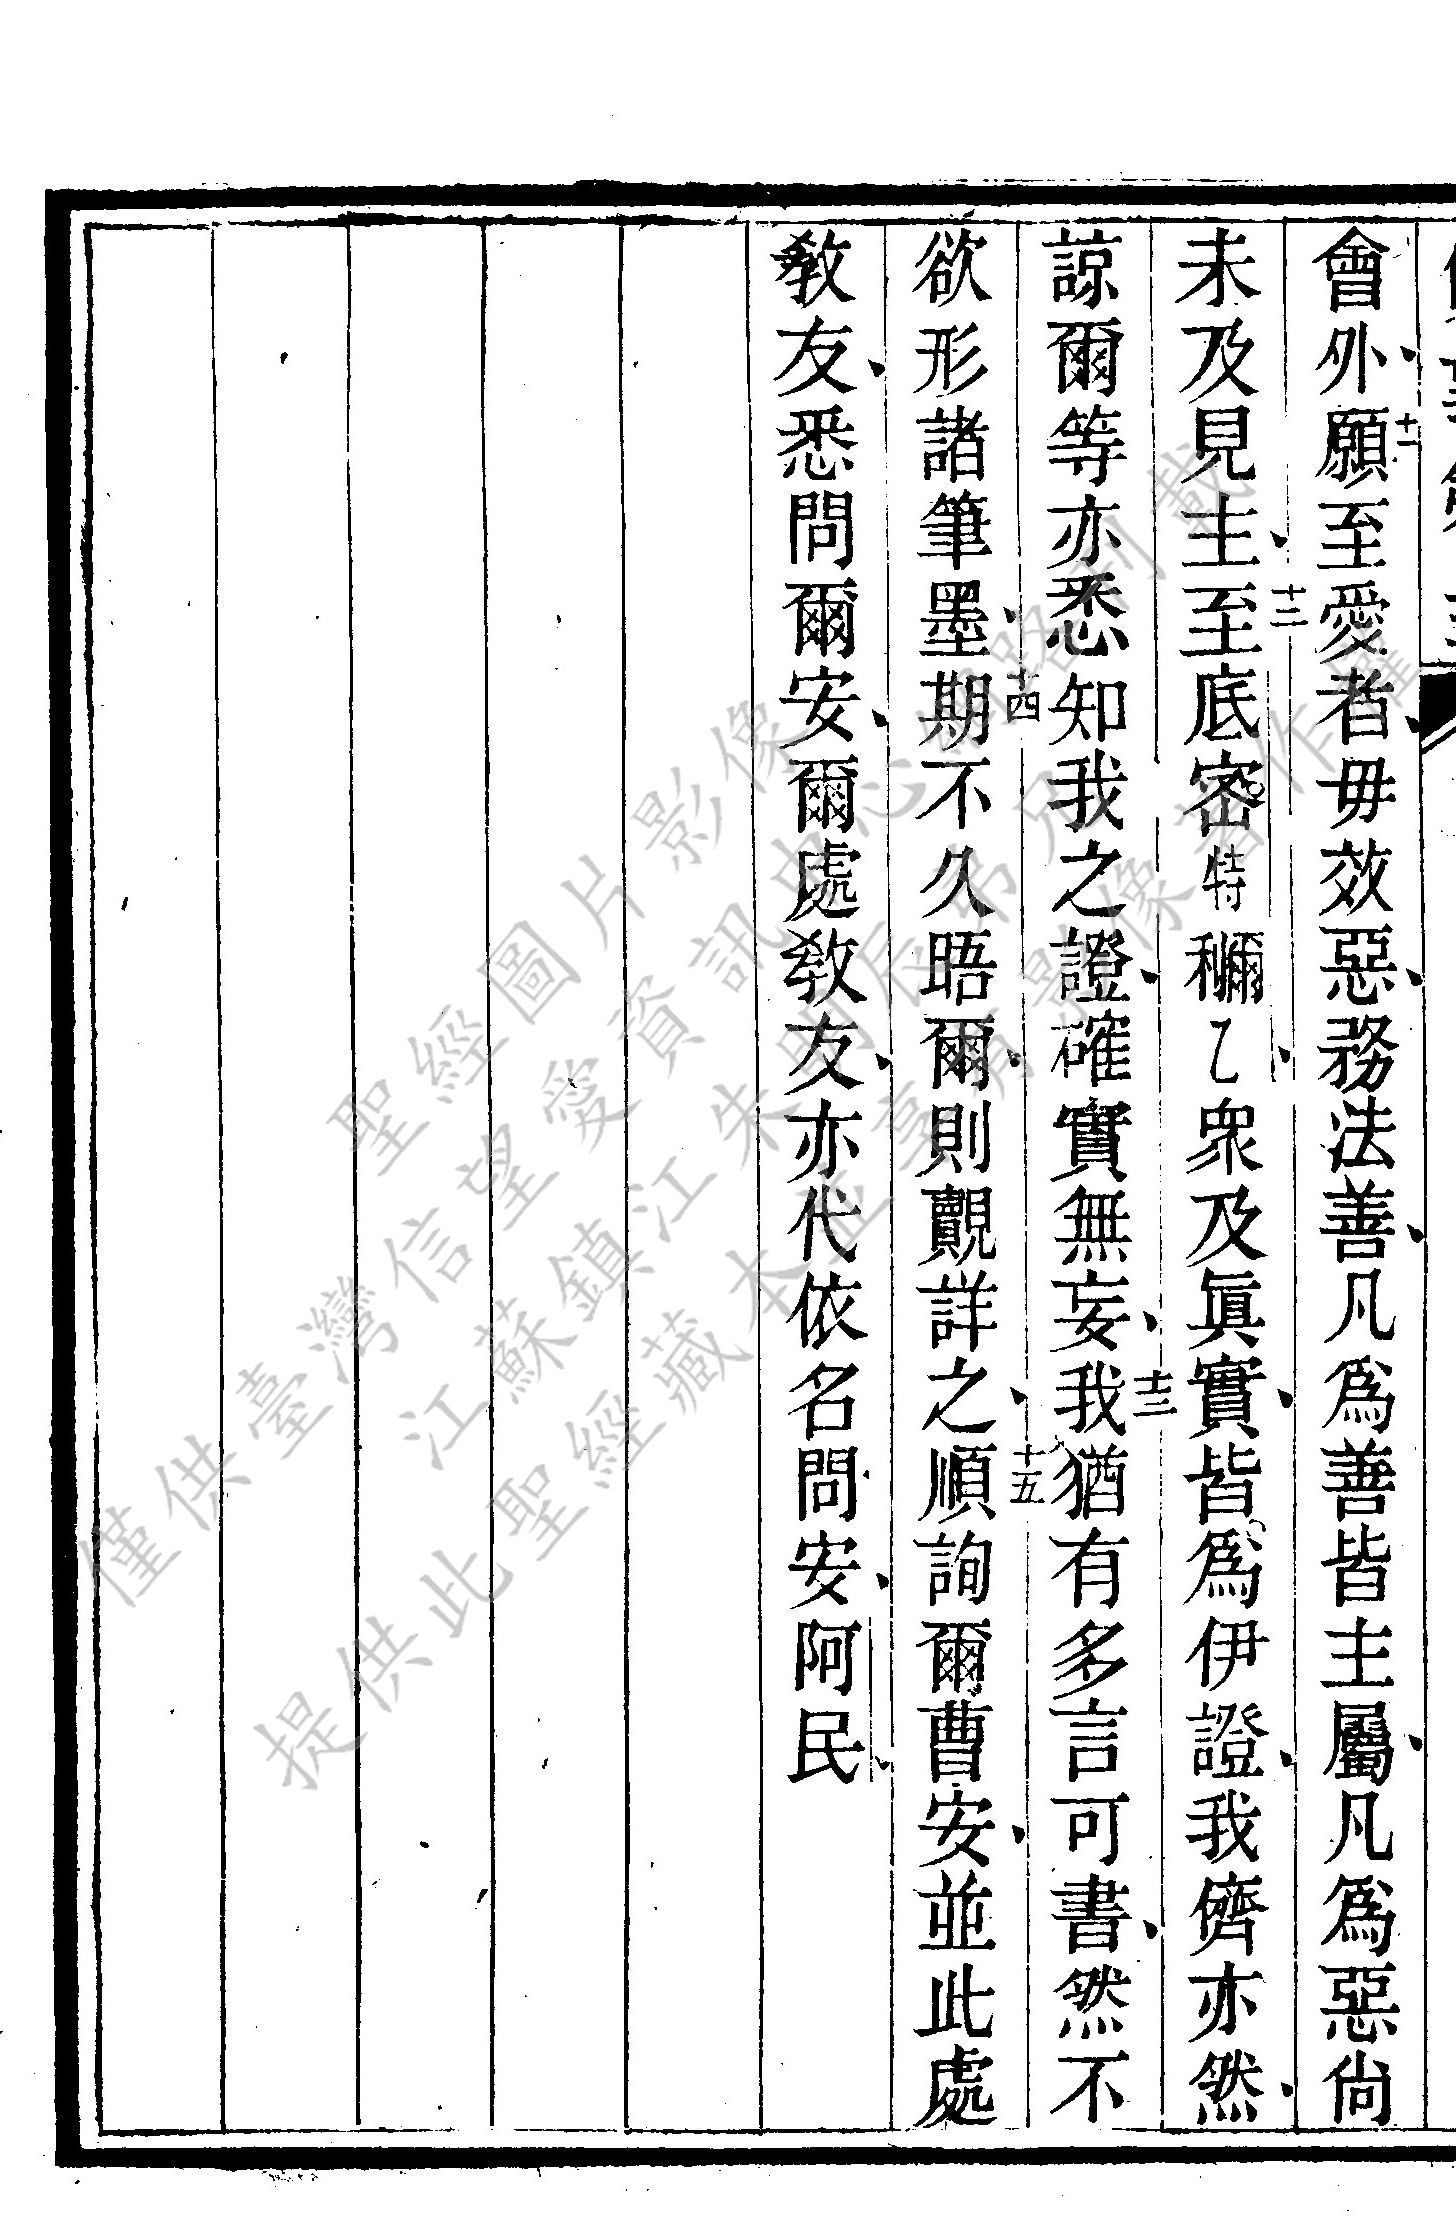 會外、十一願至愛者、毋效惡、務法善、凡爲善皆主屬、凡爲惡尙
未及見主、十二至底密特秘彌乙、衆及眞實、皆爲伊證、我儕亦然、
諒爾等亦悉知我之證、確實無妄、十三我猶有多言可書、然不
欲形諸筆墨、十四期不久晤爾、爾則覿詳之、十五順詢爾曹安、並此處
敎友、悉問爾安、爾處敎友、亦代依名問安、阿民、
僅供臺灣信望愛資訊中心網路刊載
聖經圖片影像
江蘇鎮江朱明辰弟兄
提供此聖經藏本並享有影像著作權